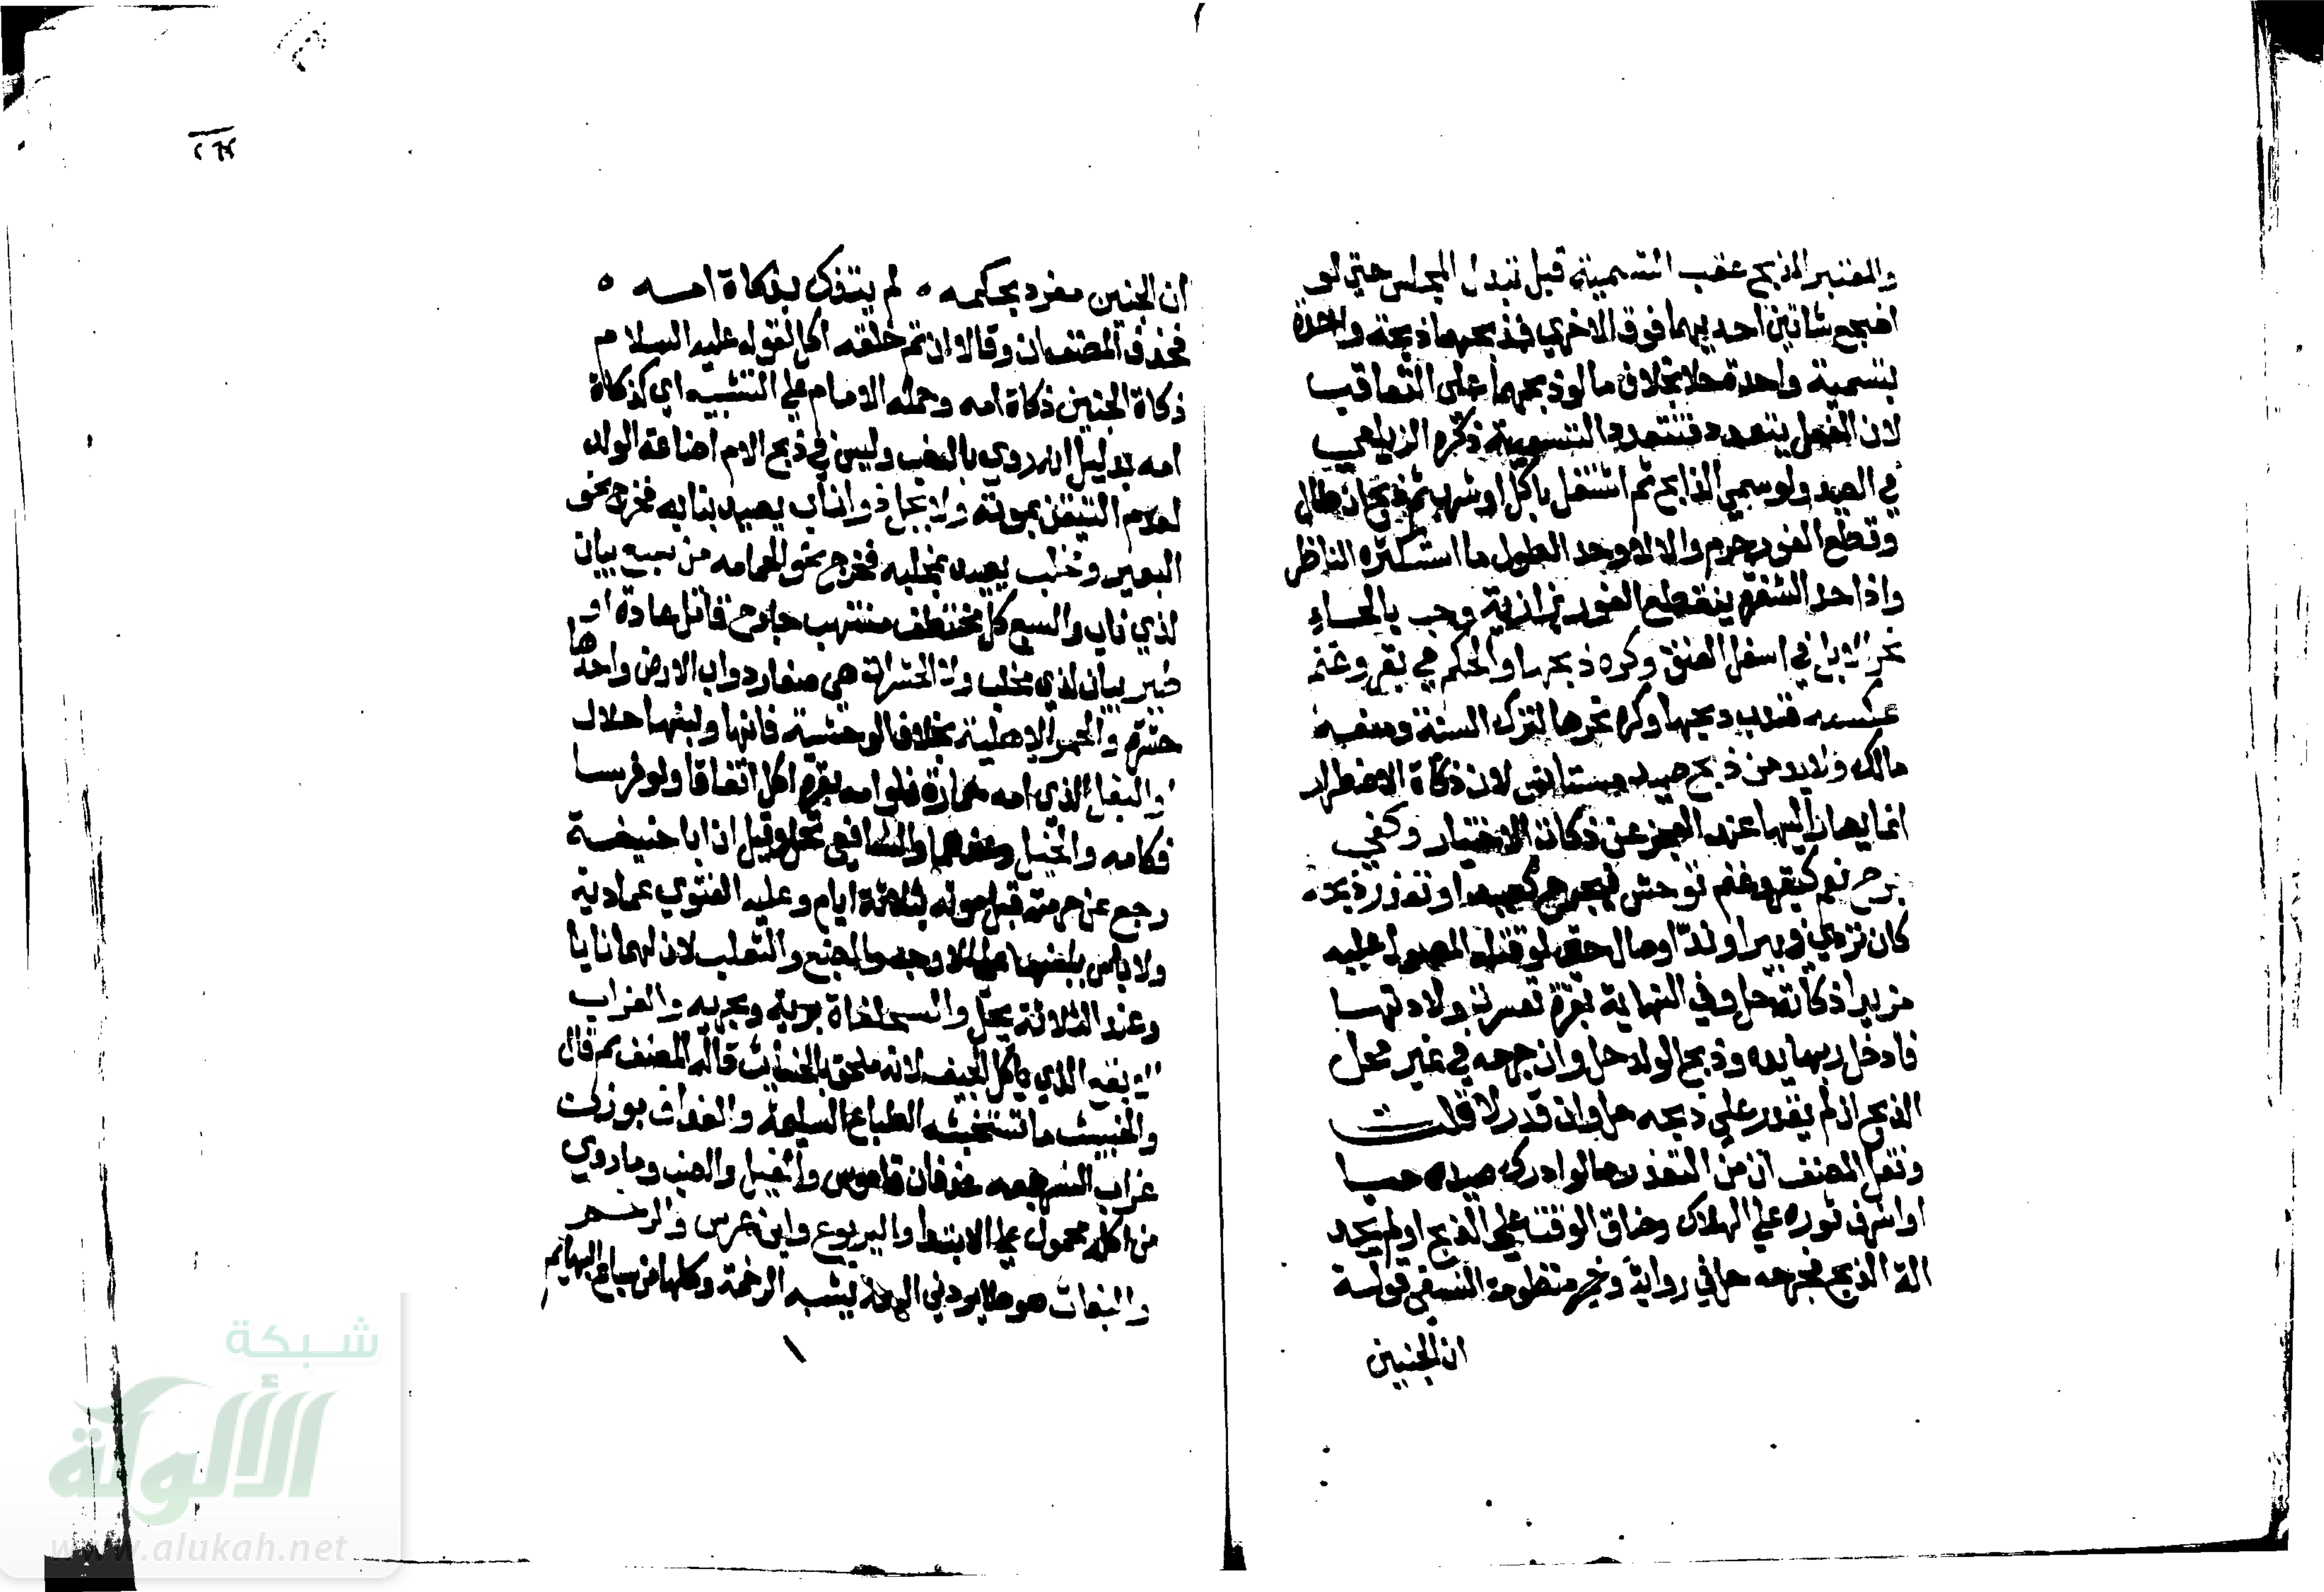 والمعتبر الذبح عقب التسمية قبل تبدل المجلس حتى لو
اضجع شاتين احديهما فوق الاخرى فذبحهما ذبحة واحدة
بتسمية واحدة حلا بخلاف ما لو ذبحهما على التعاقب
لان الفعل يتعدد فتتعدد التسمية ذكره الزيلعي
في الصيد ولو سمي الذابح ثم اشتغل باكل او شرب ثم ذبح ان طال
وقطع الفور حرم والا لا وحد الطول ما استكثره الناظر
واذا حد الشفرة ينقطع الفور بزازية وحب بالحاء
نحر الابل في اسفل العنق وكره ذبحها والحكم في بقر وغنم
عكسه فندب ذبحها وكره نحرها لترك السنة ومنعه
مالك ولابد من ذبح صيد مستانس لان ذكاة الاضطرار
انما يصار اليها عند العجز عن ذكاة الاختيار وكفي
جرح نعم كبقر وغنم توحش فيجرح كصيد او تعذر ذبحه
كان تردي في بير او ندّ او صال حتى لو قتله المصول عليه
مريدا ذكاته حل وفي النهاية بقرة تعسرت ولادتها
فادخل ربها يده وذبح الولد حل وان جرحه في غير محل
الذبح ان لم يقدر على ذبحه حل وان قدر لا قلت
ونقل المصنف ان من التعذر ما لو ادرك صيده حيا
او اشرف ثوره علي الهلاك وضاق الوقت علي الذبح او لم يجد
الة الذبح فجرحه حل في رواية وفي منظومة النسفي قوله
ان الجنين
ان الجنين مفرد بحكمه ه لم يتذكّ بذكاة امه ه
فحذف المصنف ان وقالا ان تم خلقه اكل لقوله عليه السلام
ذكاة الجنين ذكاة امه وحمله الامام علي التشبيه اي كذكاة
امه بدليل انه روي بالنصب وليس في ذبح الام اضاعة الولد
لعدم التيقن بموته ولا يحل ذو ناب يصيد بنابه فخرج نحو
البعير ومخلب يصيد بمخلبه فخرج نحو الحمامه من سبع بيان
لذي ناب والسبع كل مختطف منتهب جارح قاتل عادة او
طير بيان لذي مخلب ولا الحشرات هي صغار دواب الارض واحدها
حشرة والحمر الاهلية بخلاف الوحشية فانها ولبنها حلال
والبغل الذي امه حمارة فلو امه بقرة اكل اتفاقا ولو فرسا
فكامه والخيل وعندهما والشافعي تحل وقيل ان ابا حنيفة
رجع عن حرمته قبل موته بثلاثة ايام وعليه الفتوي عمادية
ولا باس بلبنها علي الاوجه والضبع والثعلب لان لهما نابا
وعند الثلاثة يحل والسلحفاة برية وبحريه والغراب
الابقع الذي ياكل الجيف لانه ملحق بالخبائث قاله المصنف ثم قال
والخبيث ما تستخبثه الطباع السليمة والغداف بوزن
غراب النسر جمعه غدفان قاموس والفيل والضب وما روي
من اكله محمول علي الابتدا واليربوع وابن عرس والرخم
والبغاث هو طاير دني الهمة يشبه الرخمة وكلها من سباع البهائم
شبكة
الألوكة
www.alukah.net